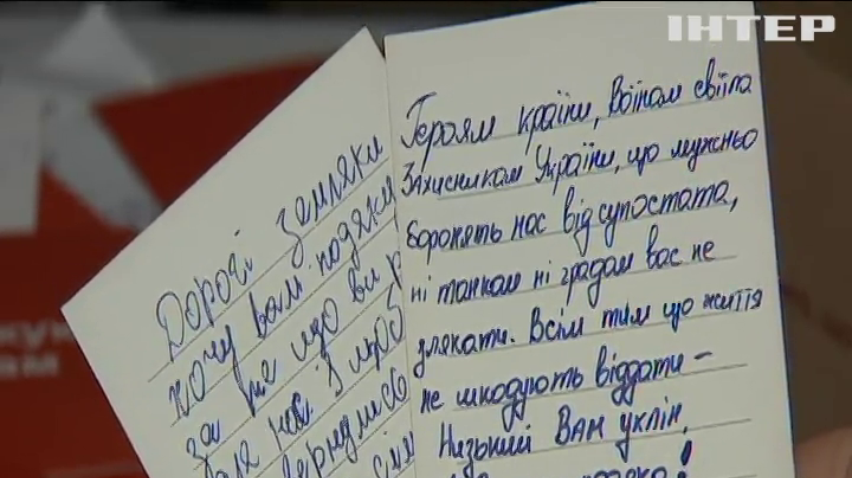 ІНТЕР
Дорогі земляки
хочу вам подяки
за те що ви
для нас
Героям країни, Воїнам світла
Захисникам України, що мужньо
боронять нас від супостата,
ні танкам ні градам вас не
злякати. Всім тим що життя
не шкодують віддати –
Низький Вам уклін,